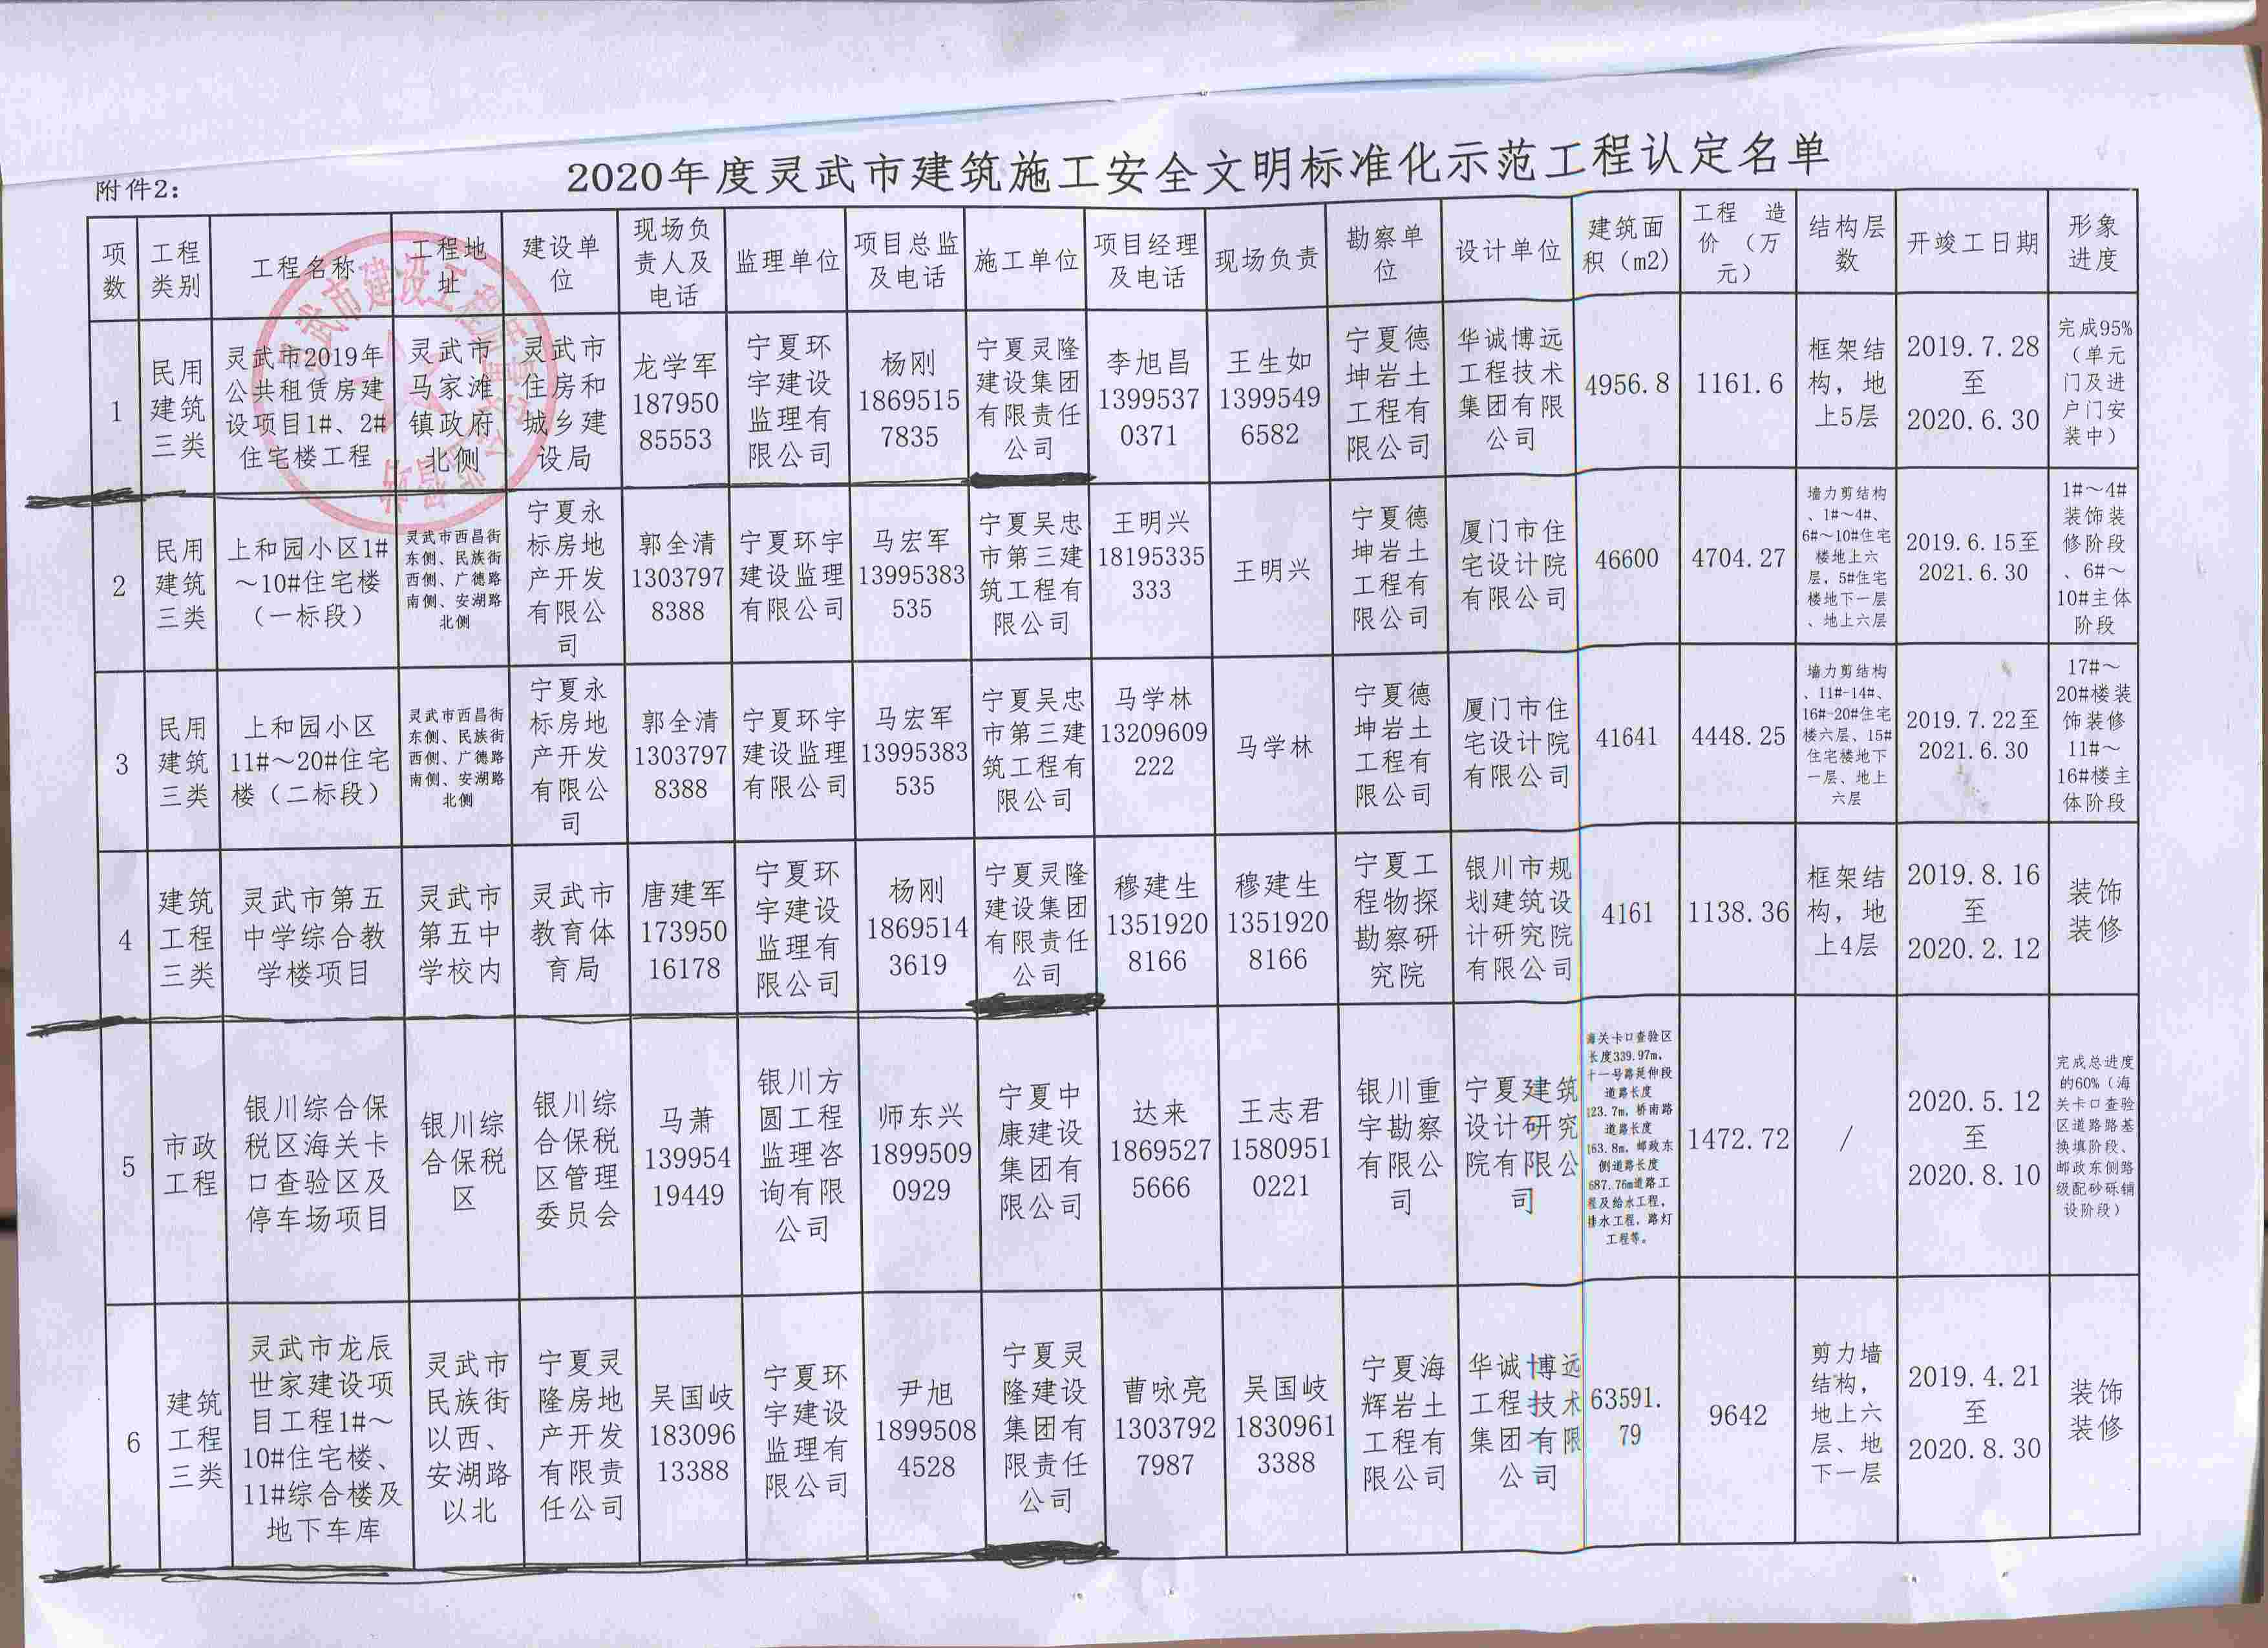 附件2：
2020年度灵武市建筑施工安全文明标准化示范工程认定名单
项数 工程类别 工程名称 工程地址 建设单位 现场负责人及电话 监理单位 项目总监及电话 施工单位 项目经理及电话 现场负责 勘察单位 设计单位 建筑面积（m2） 工程 造价 （万元） 结构层数 开竣工日期 形象进度
1 民用建筑三类 灵武市2019年公共租赁房建设项目1#、2#住宅楼工程 灵武市马家滩镇政府北侧 灵武市住房和城乡建设局 龙学军18795085553 宁夏环宇建设监理有限公司 杨刚18695157835 宁夏灵隆建设集团有限责任公司 李旭昌13995370371 王生如13995496582 宁夏德坤岩土工程有限公司 华诚博远工程技术集团有限公司 4956.8 1161.6 框架结构，地上5层 2019.7.28至2020.6.30 完成95%（单元门及进户门安装中）
2 民用建筑三类 上和园小区1#～10#住宅楼（一标段） 灵武市西昌街东侧、民族街西侧、广德路南侧、安湖路北侧 宁夏永标房地产开发有限公司 郭全清13037978388 宁夏环宇建设监理有限公司 马宏军13995383535 宁夏吴忠市第三建筑工程有限公司 王明兴18195335333 王明兴 宁夏德坤岩土工程有限公司 厦门市住宅设计院有限公司 46600 4704.27 墙力剪结构、1#～4#、6#～10#住宅楼地上六层，5#住宅楼地下一层、地上六层 2019.6.15至2021.6.30 1#～4#装饰装修阶段、6#～10#主体阶段
3 民用建筑三类 上和园小区11#～20#住宅楼（二标段） 灵武市西昌街东侧、民族街西侧、广德路南侧、安湖路北侧 宁夏永标房地产开发有限公司 郭全清13037978388 宁夏环宇建设监理有限公司 马宏军13995383535 宁夏吴忠市第三建筑工程有限公司 马学林13209609222 马学林 宁夏德坤岩土工程有限公司 厦门市住宅设计院有限公司 41641 4448.25 墙力剪结构、11#-14#、16#-20#住宅楼六层、15#住宅楼地下一层、地上六层 2019.7.22至2021.6.30 17#～20#楼装饰装修11#～16#楼主体阶段
4 建筑工程三类 灵武市第五中学综合教学楼项目 灵武市第五中学校内 灵武市教育体育局 唐建军17395016178 宁夏环宇建设监理有限公司 杨刚18695143619 宁夏灵隆建设集团有限责任公司 穆建生13519208166 穆建生13519208166 宁夏工程物探勘察研究院 银川市规划建筑设计研究院有限公司 4161 1138.36 框架结构，地上4层 2019.8.16至2020.2.12 装饰装修
5 市政工程 银川综合保税区海关卡口查验区及停车场项目 银川综合保税区 银川综合保税区管理委员会 马萧13995419449 银川方圆工程监理咨询有限公司 师东兴18995090929 宁夏中康建设集团有限公司 达来18695275666 王志君15809510221 银川重宇勘察有限公司 宁夏建筑设计研究院有限公司 海关卡口查验区长度339.97m，十一号路延伸段道路长度123.7m，桥南路道路长度163.8m，邮政东侧道路长度687.76m道路工程及给水工程，排水工程，路灯工程等。 1472.72 / 2020.5.12至2020.8.10 完成总进度的60%（海关卡口查验区道路路基换填阶段、邮政东侧路级配砂砾铺设阶段）
6 建筑工程三类 灵武市龙辰世家建设项目工程1#～10#住宅楼、11#综合楼及地下车库 灵武市民族街以西、安湖路以北 宁夏灵隆房地产开发有限责任公司 吴国岐18309613388 宁夏环宇建设监理有限公司 尹旭18995084528 宁夏灵隆建设集团有限责任公司 曹咏亮13037927987 吴国岐18309613388 宁夏海辉岩土工程有限公司 华诚博远工程技术集团有限公司 63591.79 9642 剪力墙结构，地上六层、地下一层 2019.4.21至2020.8.30 装饰装修